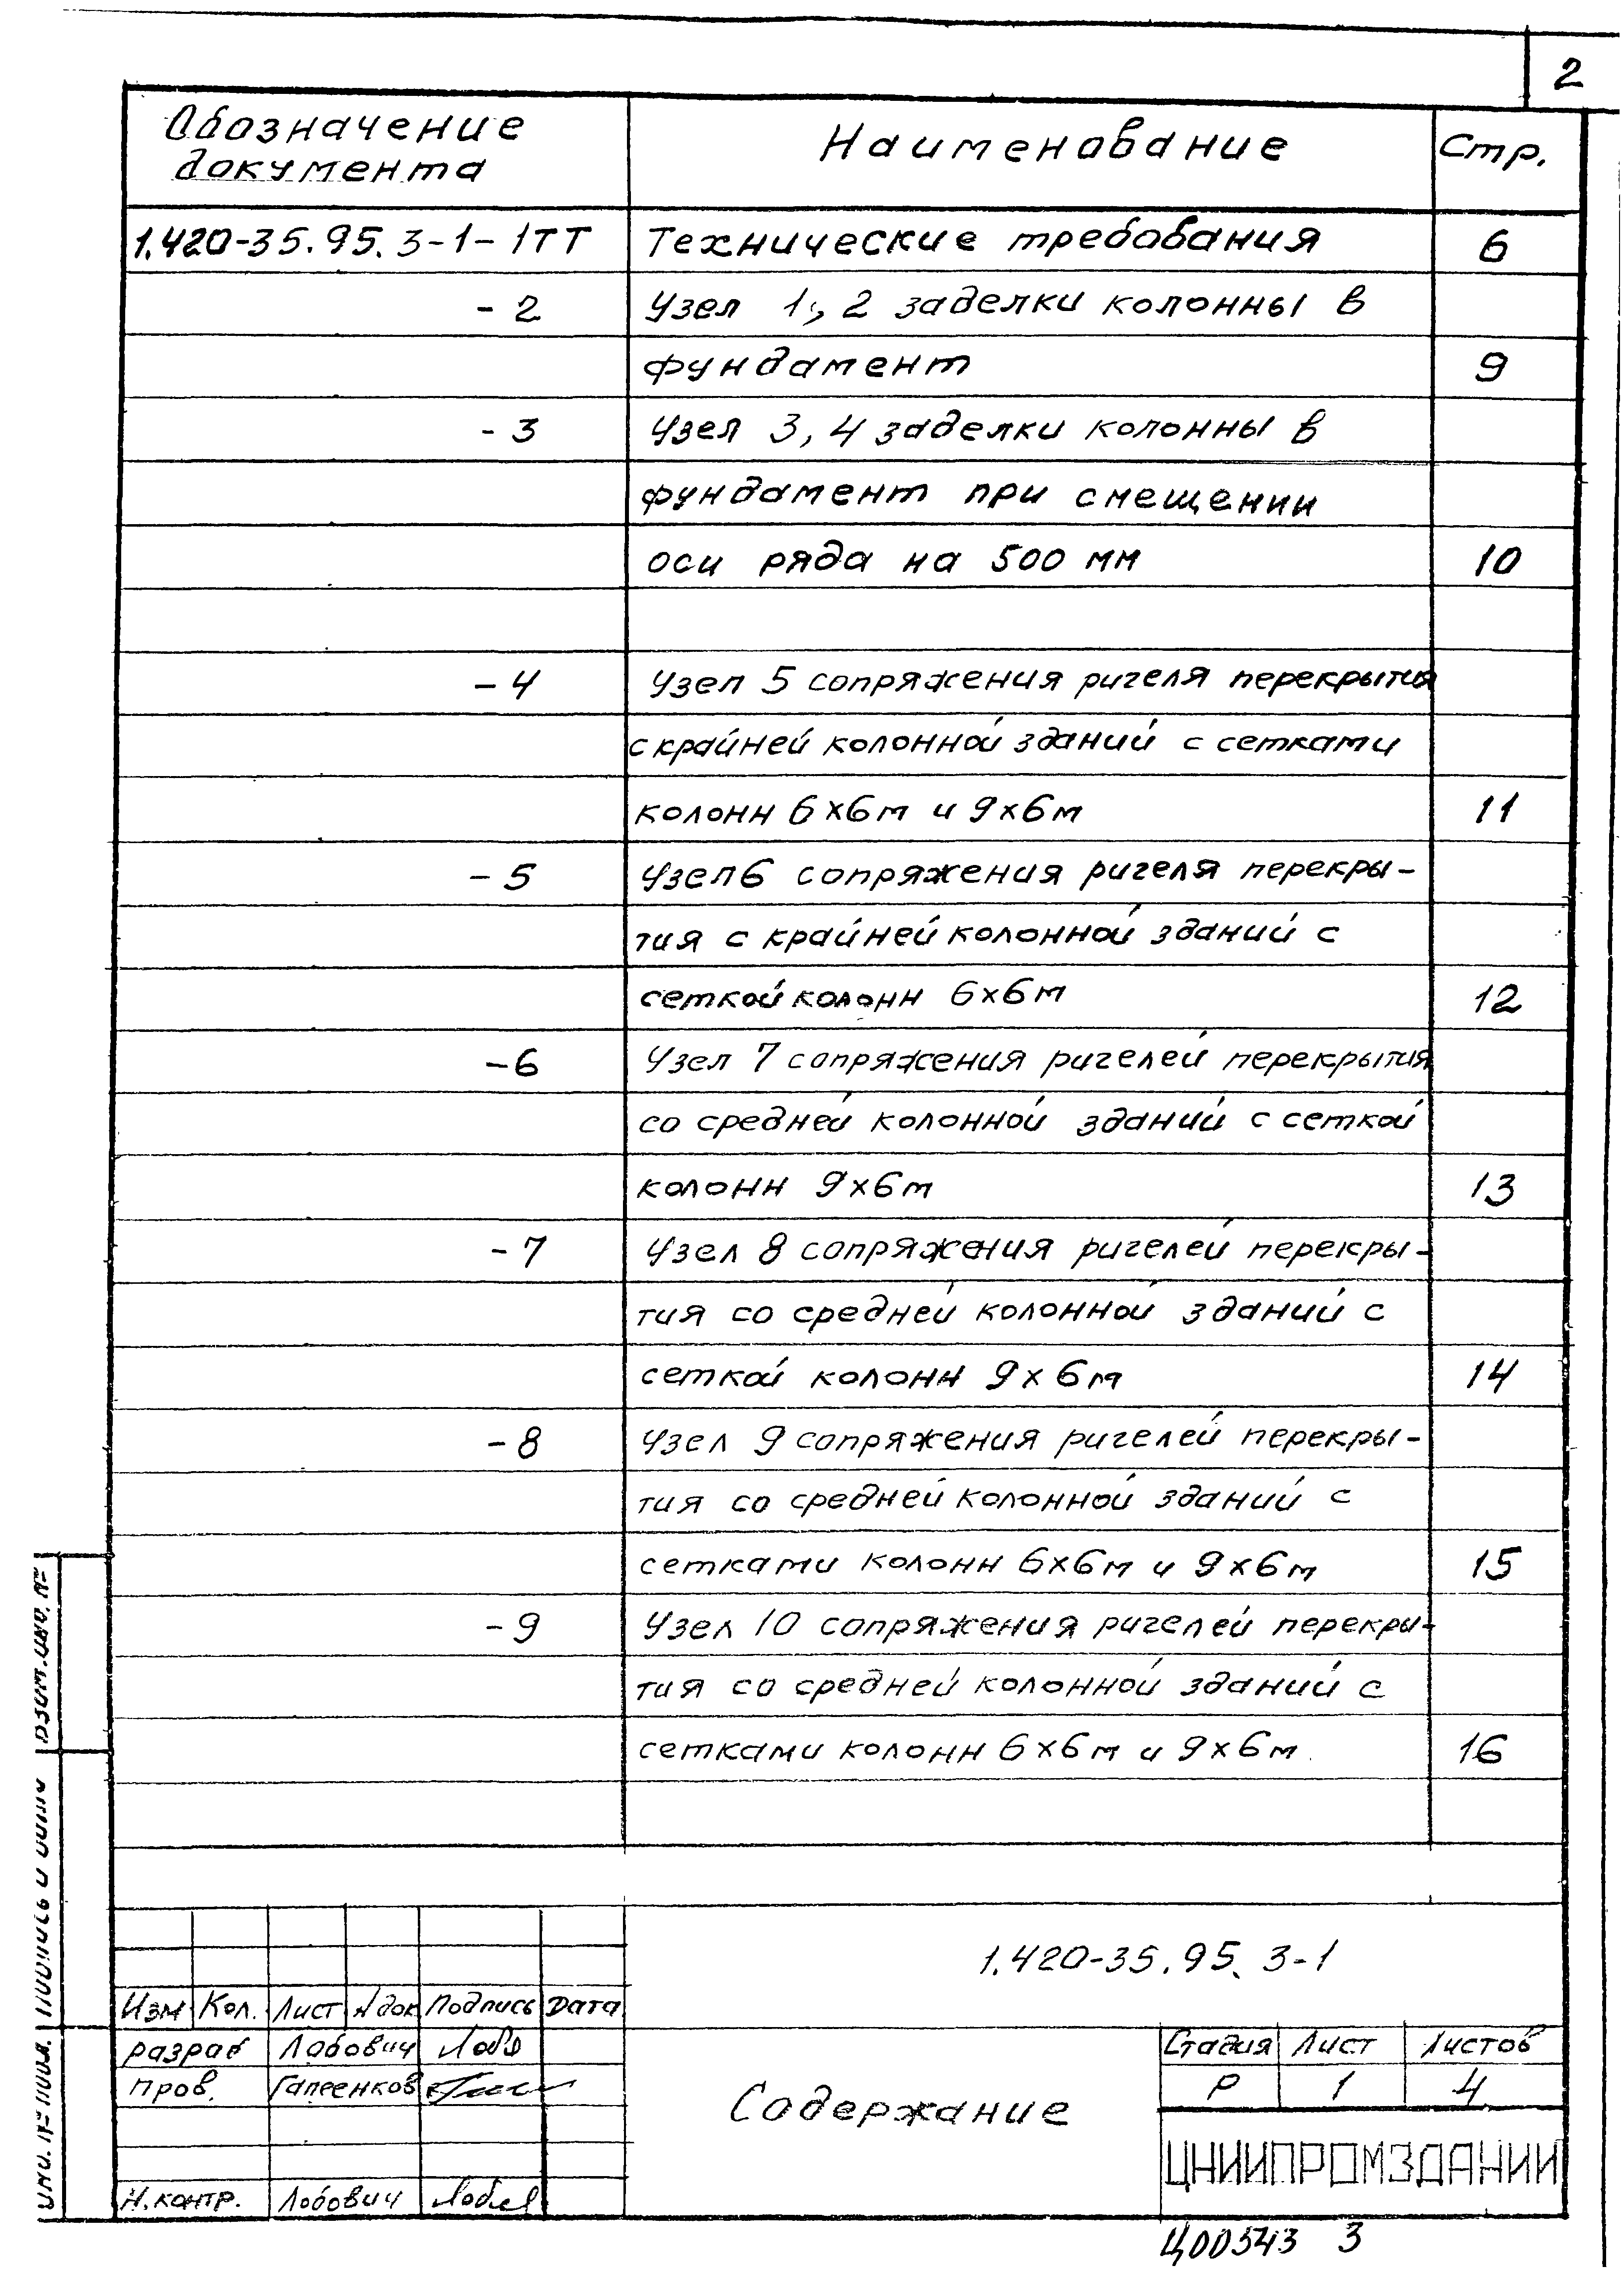 2
Обозначение документа Наименование Стр.
1.420-35.95.3-1-1ТТ Технические требования 6
-2 Узел 1, 2 заделки колонны в
фундамент 9
-3 Узел 3, 4 заделки колонны в
фундамент при смещении
оси ряда на 500 мм 10
-4 Узел 5 сопряжения ригеля перекрытия
с крайней колонной зданий с сетками
колонн 6х6м и 9х6м 11
-5 Узел 6 сопряжения ригеля перекры-
тия с крайней колонной зданий с
сеткой колонн 6х6м 12
-6 Узел 7 сопряжения ригелей перекрытия
со средней колонной зданий с сеткой
колонн 9х6м 13
-7 Узел 8 сопряжения ригелей перекры-
тия со средней колонной зданий с
сеткой колонн 9х6м 14
-8 Узел 9 сопряжения ригелей перекры-
тия со средней колонной зданий с
сетками колонн 6х6м и 9х6м 15
-9 Узел 10 сопряжения ригелей перекры-
тия со средней колонной зданий с
сетками колонн 6х6м и 9х6м 16
Взам. инв. №
Подпись и дата
Инв. № подл.
1.420-35.95.3-1
Изм Кол. Лист № док Подпись Дата
Разраб Лобович
Пров. Гапеенков
Н.контр. Лобович
Содержание
Стадия Лист Листов
Р 1 4
ЦНИИПРОМЗДАНИЙ
Ц00543 3